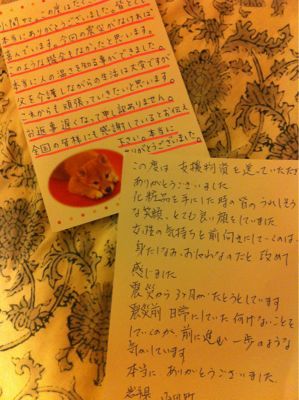 この度は
本当にありがとうございました。皆とても
喜んでいます。今回の震災がなければ
このような機会もなかったと思います。
本当に人の温さを知る事ができました。
父を介護しながらの生活は大変ですが
これからも頑張っていきたいと思います。
お返事遅くなって申し訳ありません。
全国の皆様にも感謝しているとお伝え
下さい。本当に
ありがとうございました。
この度は 支援物資を送っていただき
ありがとうございました
化粧品を手にした時の皆のうれしそう
な笑顔、とても良い顔をしていました
女性の気持ちを前向きにしていくのは
身だしなみ、おしゃれなのだと 改めて
感じました
震災から3ヶ月がたとうとしています
震災前 日常にしていた何げないことを
していくのが、前に進む一歩のような
気がしています
本当に ありがとうございました。
岩手県 山田町